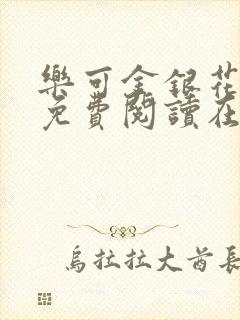 樂可金銀花
免費閱讀在
烏拉拉大酋長